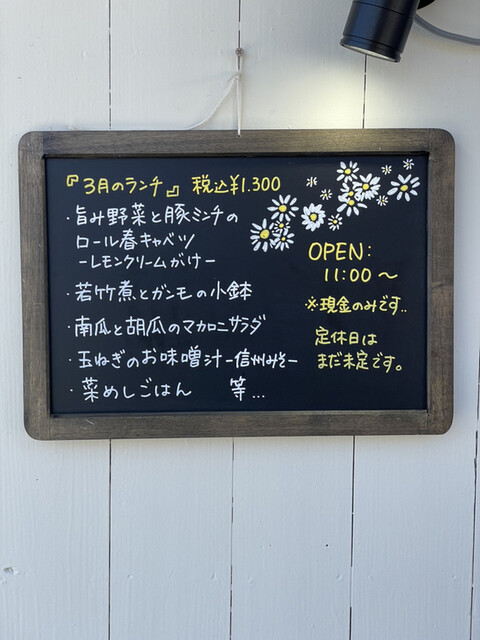 『3月のランチ』 税込¥1.300
・旨み野菜と豚ミンチの
ロール春キャベツ
-レモンクリームがけ-
・若竹煮とガンモの小鉢
・南瓜と胡瓜のマカロニサラダ
・玉ねぎのお味噌汁-信州みそ-
・菜めしごはん 等...
OPEN:
11:00～
※現金のみです..
定休日は
まだ未定です。